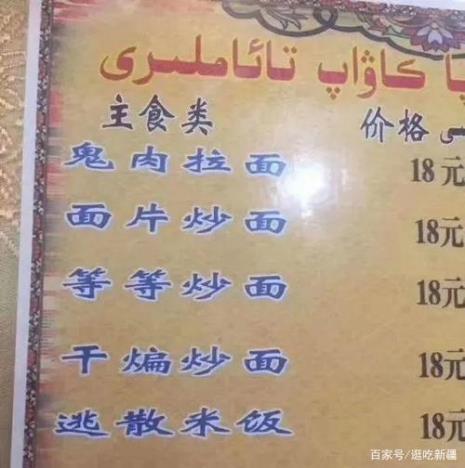 يا كاۋاپ تائاملىرى
主食类 价格
鬼肉拉面 18元
面片炒面 18元
等等炒面 18元
干煸炒面 18元
逃散米饭 18元
百家号/逛吃新疆